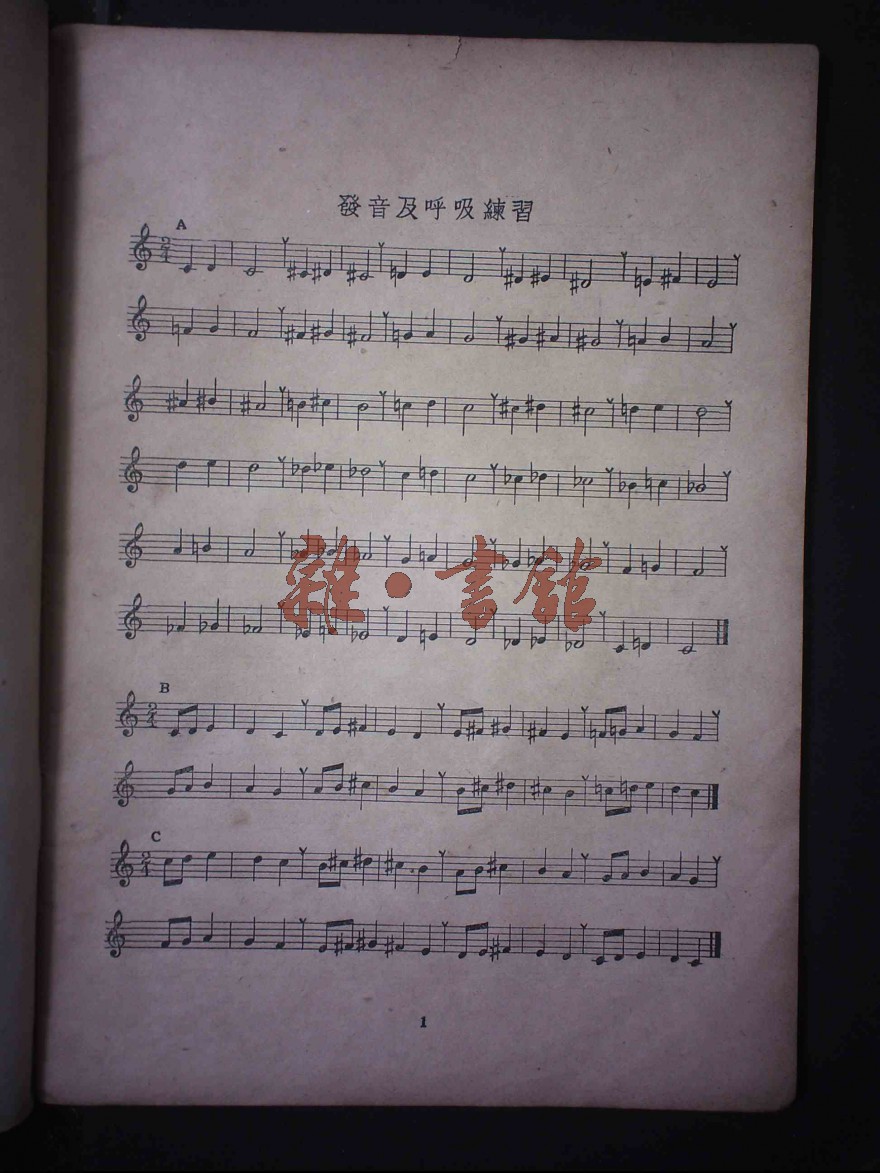 發音及呼吸練習
A
2/4
雜·書館
B
2/4
C
2/4
1